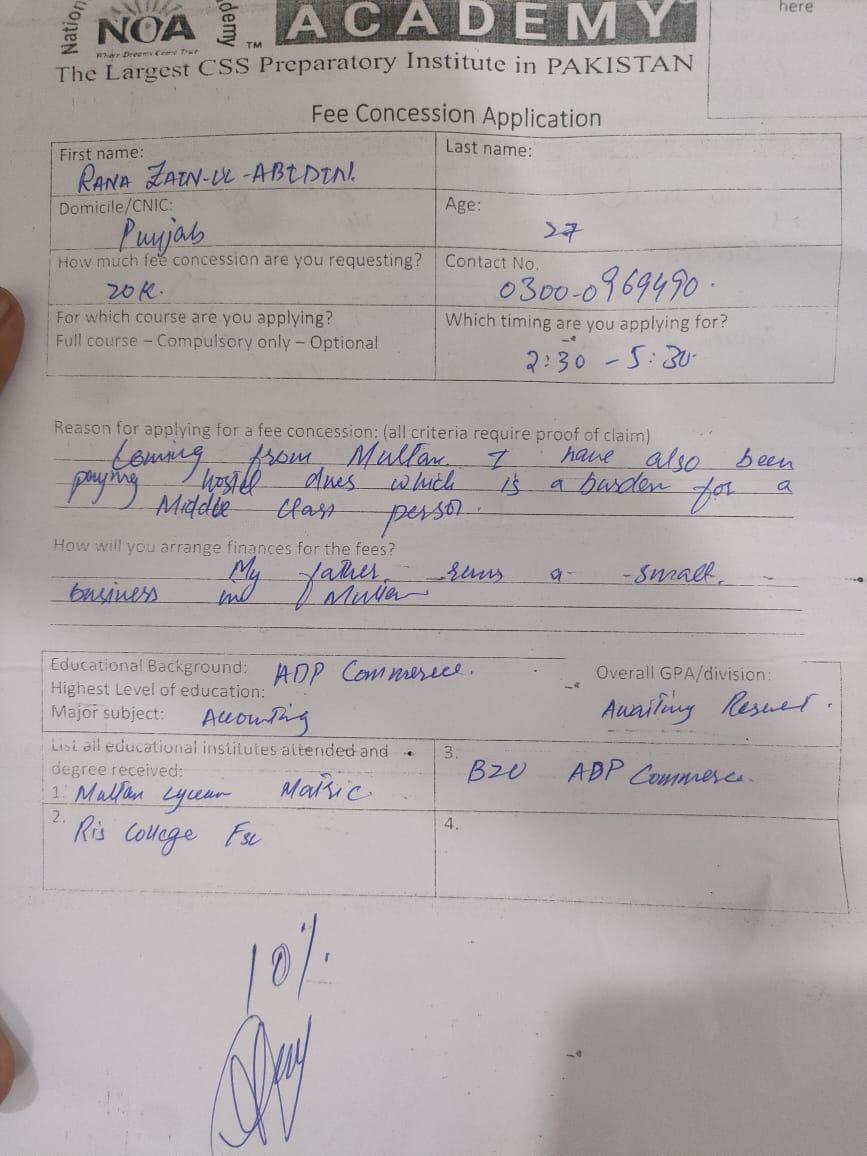 Nation
NOA
demy
Where Dreams Come True
TM
ACADEMY
here
The Largest CSS Preparatory Institute in PAKISTAN
Fee Concession Application
First name:
RANA ZAIN-UL-ABIDIN.
Last name:
Domicile/CNIC:
Punjab
Age:
27
How much fee concession are you requesting?
20K.
Contact No.
0300-0969490.
For which course are you applying?
Full course – Compulsory only – Optional
Which timing are you applying for?
2:30 - 5:30
Reason for applying for a fee concession: (all criteria require proof of claim)
Coming from Multan. I have also been
paying hostel dues which is a burden for a
Middle class person.
How will you arrange finances for the fees?
My father runs a small
business in Multan
Educational Background: ADP Commerece.
Highest Level of education:
Major subject: Accounting
Overall GPA/division:
Awaiting Result.
List all educational institutes attended and
degree received:
1. Multan Lyceum Matric
2. Ris College Fsc
3. BZU ADP Commerce.
4.
10%